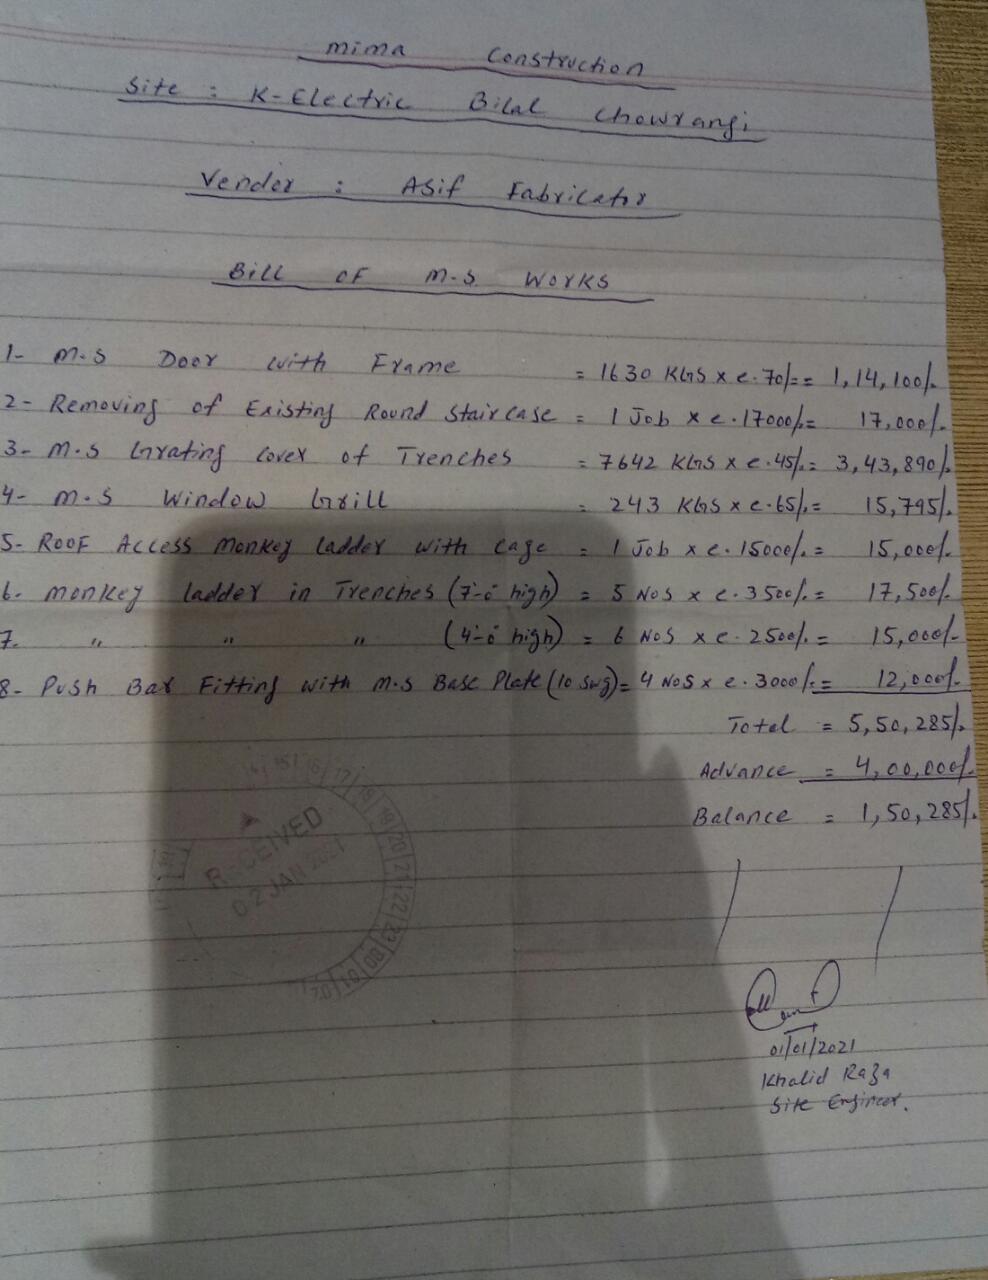 Mima Construction
Site : K-Electric Bilal Chowrangi
Vender : Asif Fabricator
Bill of M.S Works
1- M.S Door with Frame = 1630 KGS x @.70/= = 1,14,100/-
2- Removing of Existing Round Staircase = 1 Job x @.17000/= 17,000/-
3- M.S Grating Cover of Trenches = 7642 KGS x @.45/= 3,43,890/-
4- M.S Window Grill = 243 KGS x @.65/= 15,795/-
5- Roof Access Monkey Ladder with cage = 1 Job x @.15000/= 15,000/-
6- Monkey ladder in Trenches (7'-0" high) = 5 NOS x @.3500/= 17,500/-
7- " " " (4'-0" high) = 6 NOS x @.2500/= 15,000/-
8- Push Bar Fitting with M.S Base Plate (10 swg) = 4 NOS x @.3000/= 12,000/-
Total = 5,50,285/-
Advance = 4,00,000/-
Balance = 1,50,285/-
15 16 17 18 19 20 21 22 23 00 01 02
RECEIVED
02 JAN 2021
01/01/2021
Khalid Raza
Site Engineer.